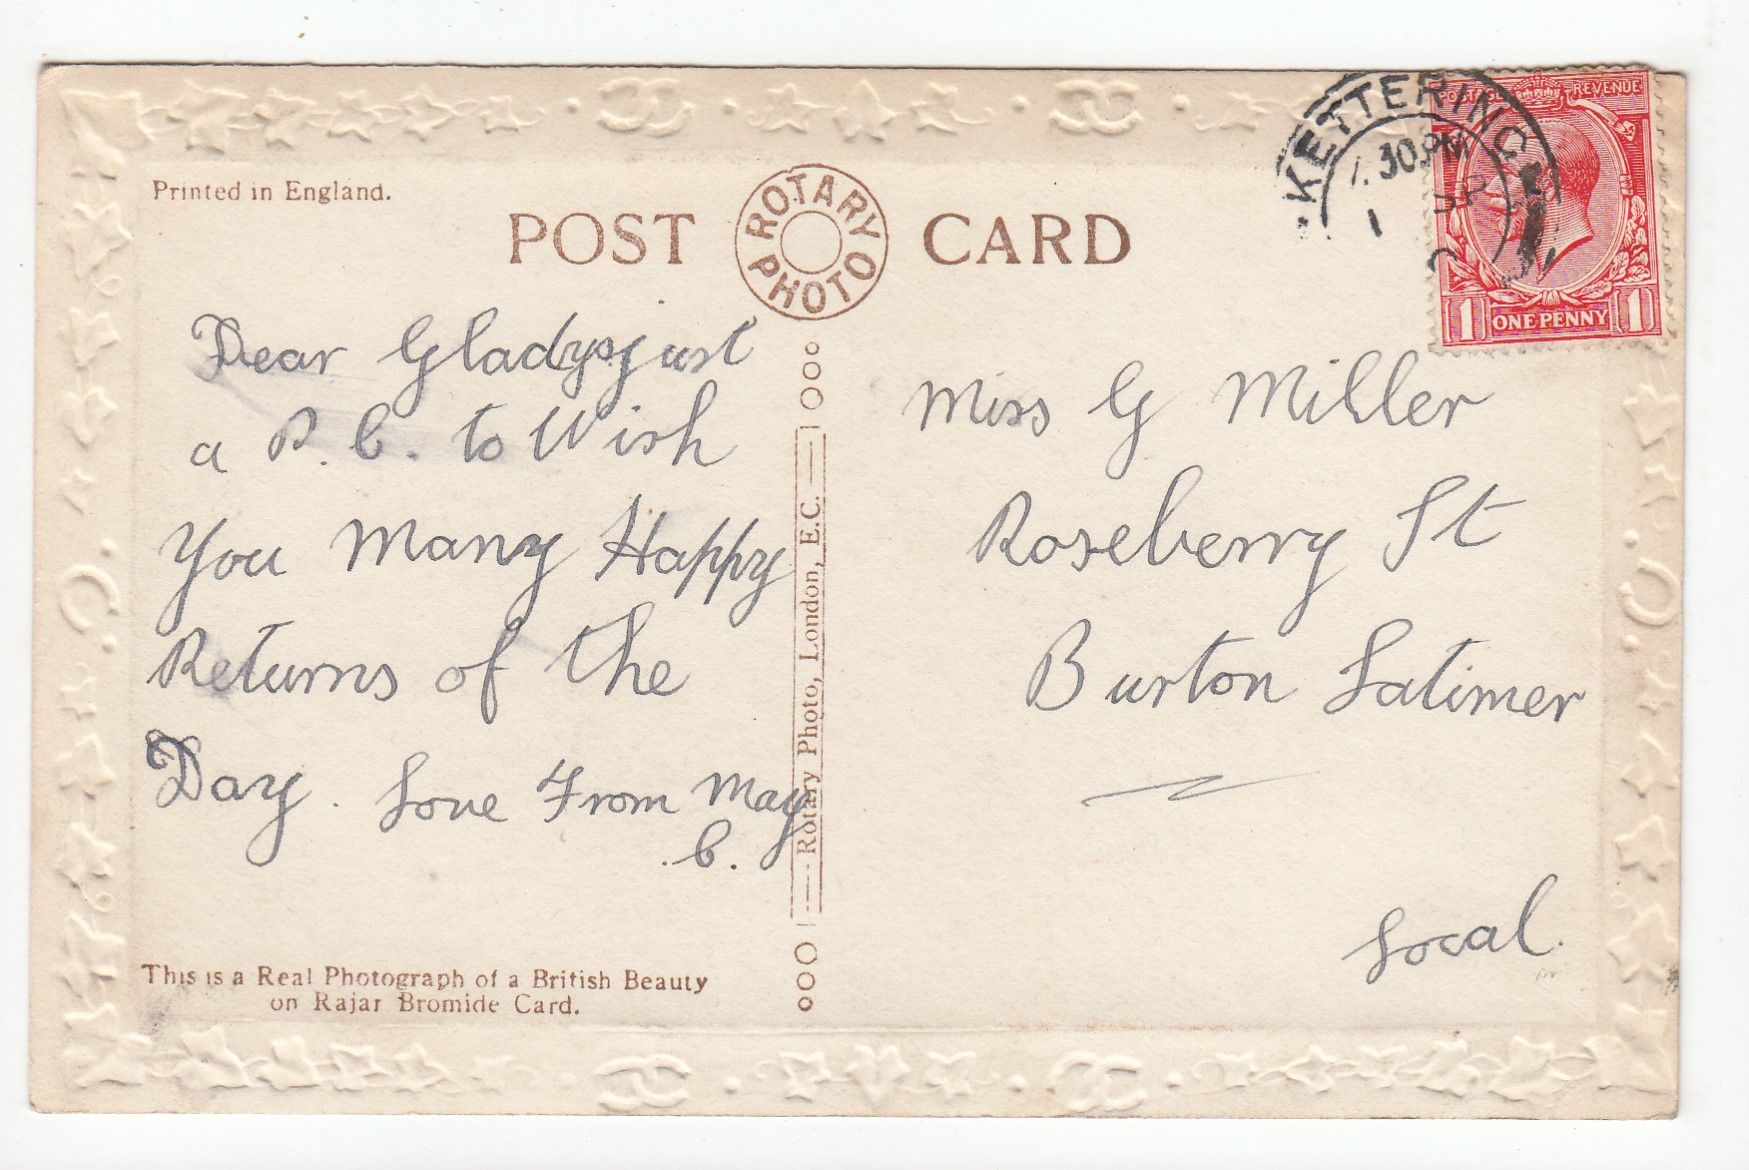 Printed in England.
POST CARD
ROTARY PHOTO
KETTERING
30 PM
1 SP
POSTAGE REVENUE
1 ONE PENNY 1
Dear Gladys just
a P.C. to Wish
You Many Happy
Returns of the
Day. Love From May
C.
Rotary Photo, London, E.C.
Miss G Miller
Roseberry St
Burton Latimer
Local.
This is a Real Photograph of a British Beauty
on Rajar Bromide Card.